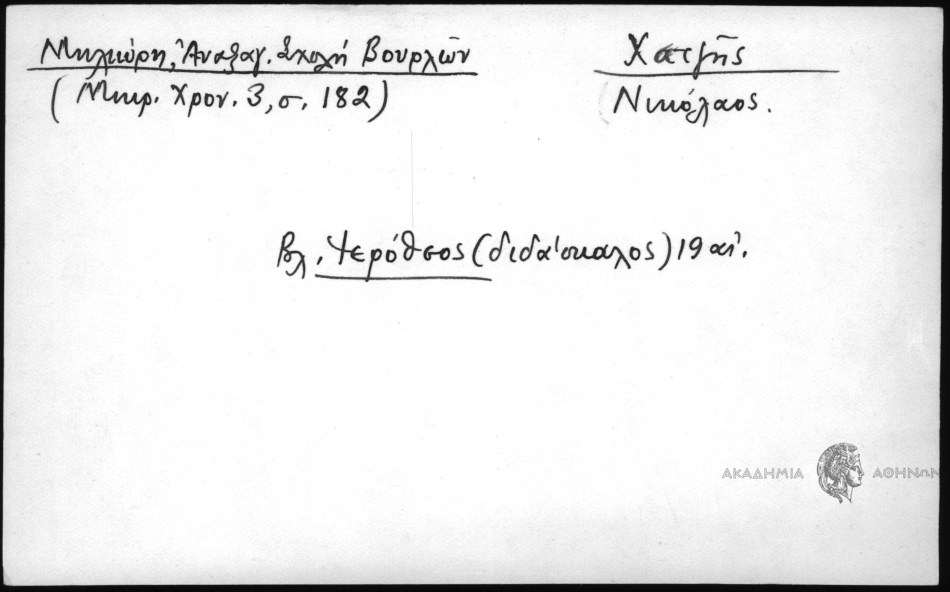 Μηλιώρη, Ἀναξαγ. Σχολή Βουρλῶν
(Μικρ. Χρον. 3, σ. 182)
Χατζῆς
Νικόλαος.
Βλ. Ἱερόθεος (διδάσκαλος) 19 αἰ.
ΑΚΑΔΗΜΙΑ ΑΘΗΝΩΝ